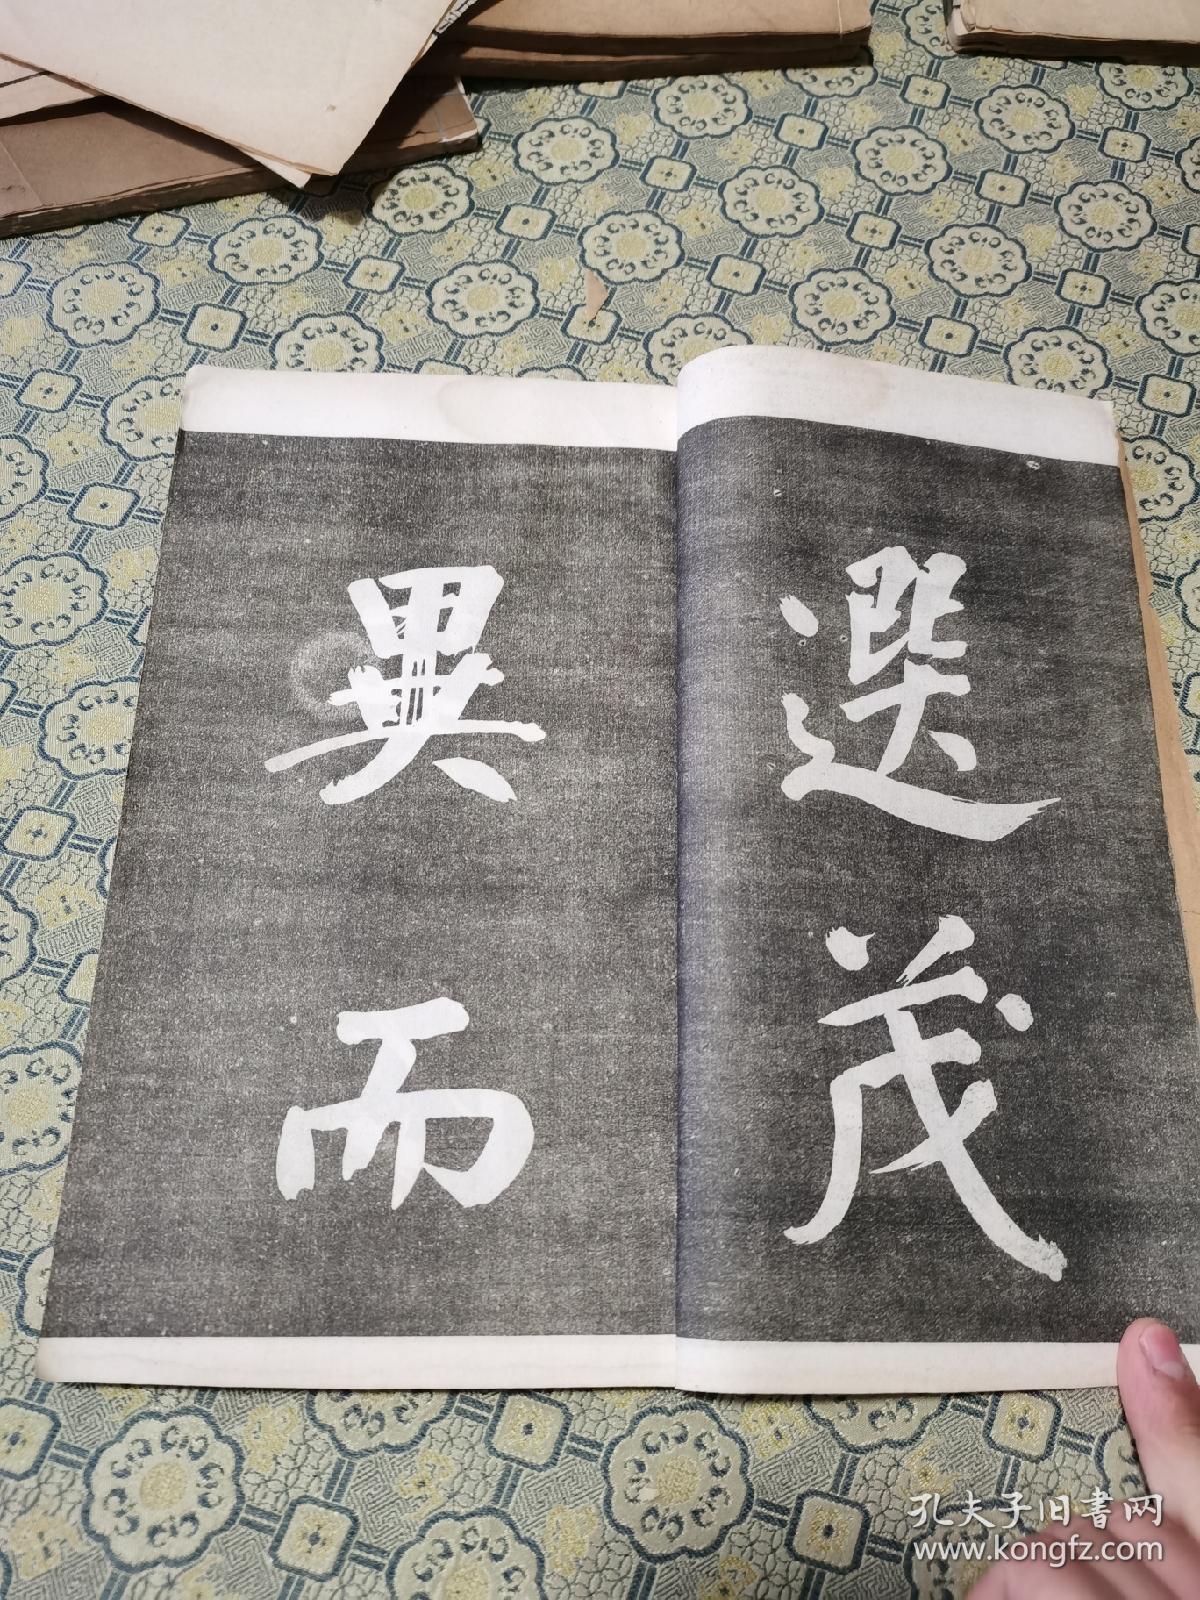 選茂
異而
孔夫子旧書网
www.kongfz.com